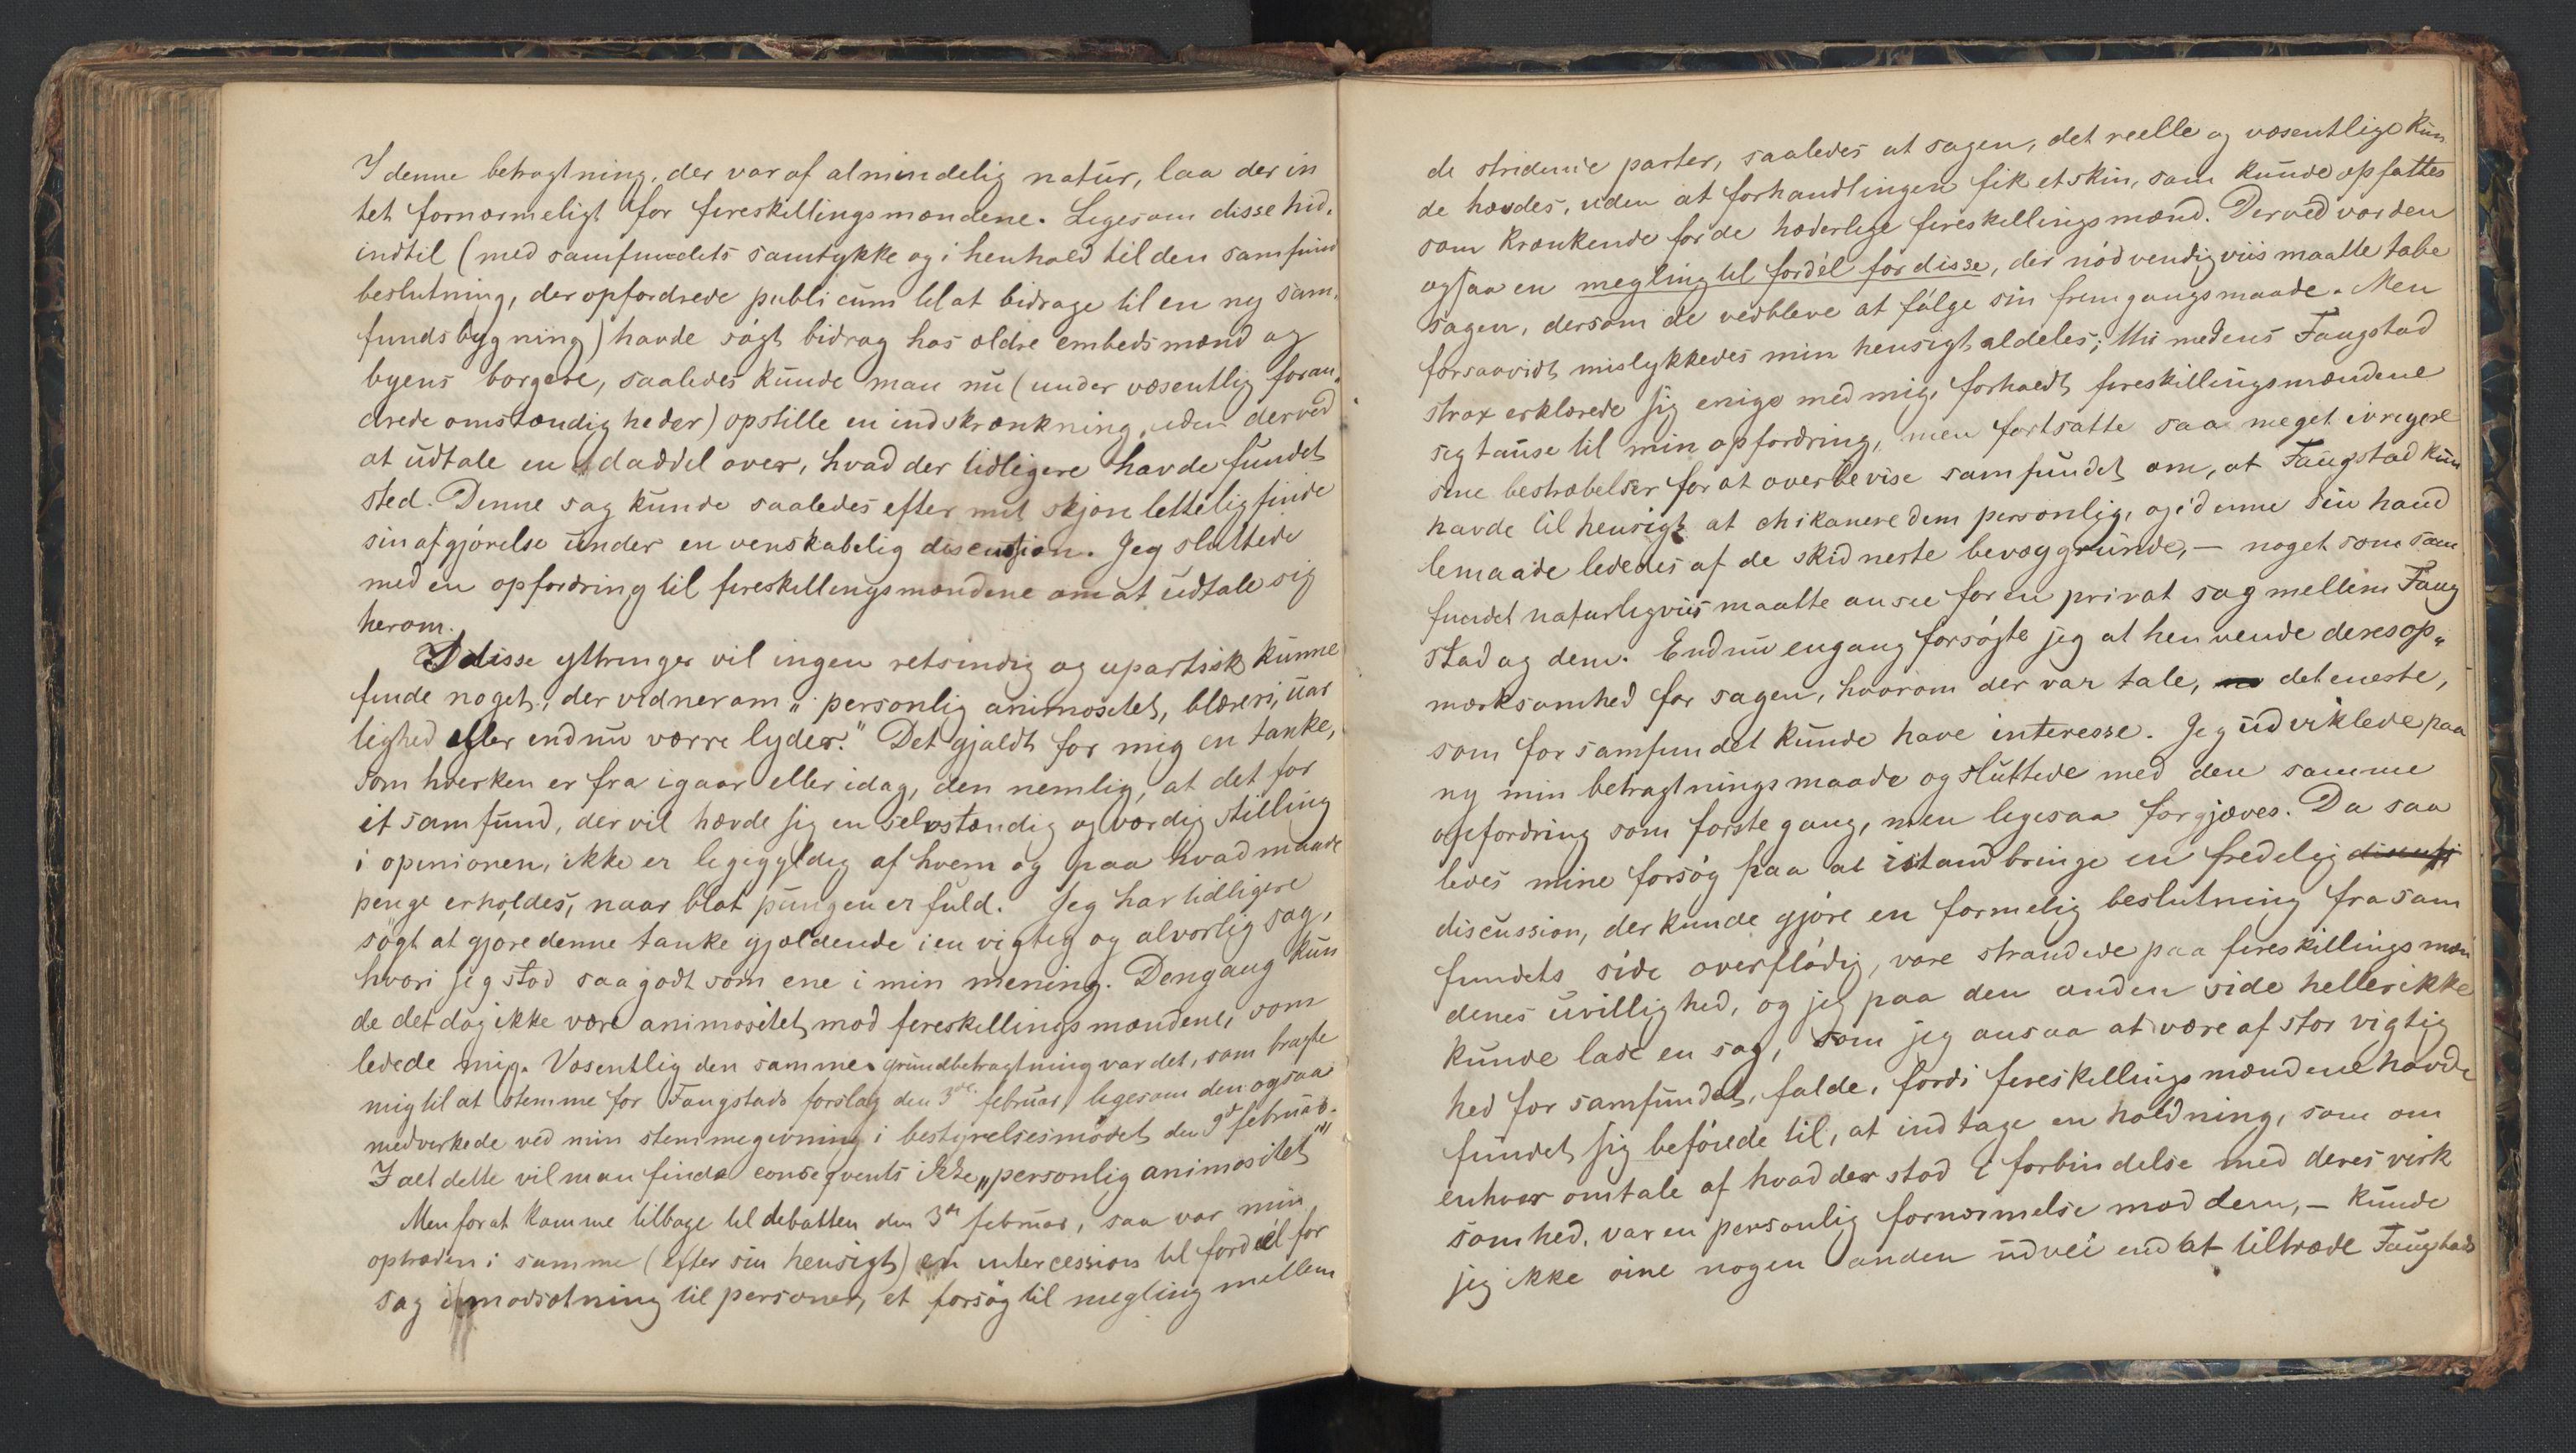 I denne betragtning, der var af almindelig natur, laa der in
tet fornærmeligt for fireskillingsmændene. Ligesom disse hid-
indtil (med samfundets samtykke og i henhold til den samfund
beslutning, der opfordrede publicum til at bidrage til en ny sam-
fundsbygning) havde søgt bidrag hos ældre embedsmænd og
byens borgere, saaledes kunde man nu (under væsentlig foran-
drede omstændigheder) opstille en indskrænkning, uden derved
at udtale en daddel over, hvad der tidligere havde fundet
sted. Denne sag kunde saaledes efter mit skjøn letteligt finde
sin afgjørelse under en venskabelig discussion. Jeg sluttede
med en opfordring til fireskillingsmændene om at udtale sig
herom.
I disse yttringer vil ingen retsindig og upartisk kunne
finde noget, der vidner om „personlig animositet, blæreri, uær
lighed eller endnu værre lyder." Det gjaldt for mig en tanke,
som hverken er fra igaar eller idag, den nemlig, at det for
et samfund, der vil hævde sig en selvstændig og værdig stilling
i opinionen, ikke er ligegyldig af hvem og paa hvad maade
penge erholdes, naar blot pungen er fuld. Jeg har tidligere
søgt at gjøre denne tanke gjældende i en vigtig og alvorlig sag,
hvori jeg stod saagodt som ene i min mening. Dengang kun
de det dog ikke være animositet mod fireskillingsmændene, som
ledede mig. Væsentlig den samme grundbetragtning var det, som bragte
mig til at stemme for Faugstads forslag den 3de februar, ligesom den ogsaa
medvirkede ved min stemmegivning i bestyrelsesmødet den 9de februar.
I alt dette vil man finde conseqvents ikke „personlig animositet"
Men for at komme tilbage til debatten den 3de februar, saa var min
optræden i samme (efter sin hensigt) en intercession til fordel for
sag i modsætning til personer, et forsøg til megling mellem
de stridende parter, saaledes at sagen, det reelle og væsentlige kun
de hævdes, uden at forhandlingen fik et skin, som kunde opfattes
som krænkende for de hæderlige fireskillingsmænd. Derved var den
ogsaa en megling til fordel for disse, der nødvendigviis maatte tabe
sagen, dersom de vedbleve at følge sin fremgangsmaade. Men
forsaavidt mislykkedes min hensigt aldeles; thi medens Faugstad
strax erklærede sig enige med mig, forholdt fireskillingsmændene
sig tause til min opfordring, men fortsatte saa meget ivrigere
sine bestræbelser for at overbevise samfundet om, at Faugstad kun
havde til hensigt at chikanere dem personlig, og i denne sin hand
lemaade lededes af de skidneste bevæggrunde, — noget som sam
fundet naturligviis maatte ansee for en privat sag mellem Faug
stad og dem. Endnu engang forsøgte jeg at henvende deres op-
mærksomhed for sagen, hvorom der var tale, det eneste,
som for samfundet kunde have interesse. Jeg udviklede paa
ny min betragtningsmaade og sluttede med den samme
opfordring som første gang, men ligesaa forgjæves. Da saa
ledes mine forsøg paa at istandbringe en fredelig discussi
discussion, der kunde gjøre en formelig beslutning fra sam
fundets side overflødig, vare strandede paa fireskillingsmæn
denes uvillighed, og jeg paa den anden side heller ikke
kunde lade en sag, som jeg ansaa at være af stor vigtig
hed for samfundet, falde, fordi fireskillingsmændene havde
fundet sig beføiede til, at indtage en holdning, som om
enhver omtale af hvad der stod i forbindelse med deres virk
somhed, var en personlig fornærmelse mod dem, — kunde
jeg ikke øine nogen anden udvei end at tiltræde Faugstads